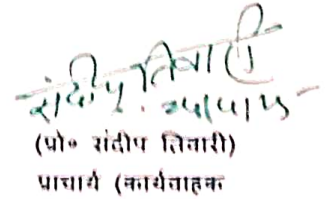 संदीप तिवारी
(प्रो० संदीप तिवारी)
प्राचार्य (कार्यवाहक